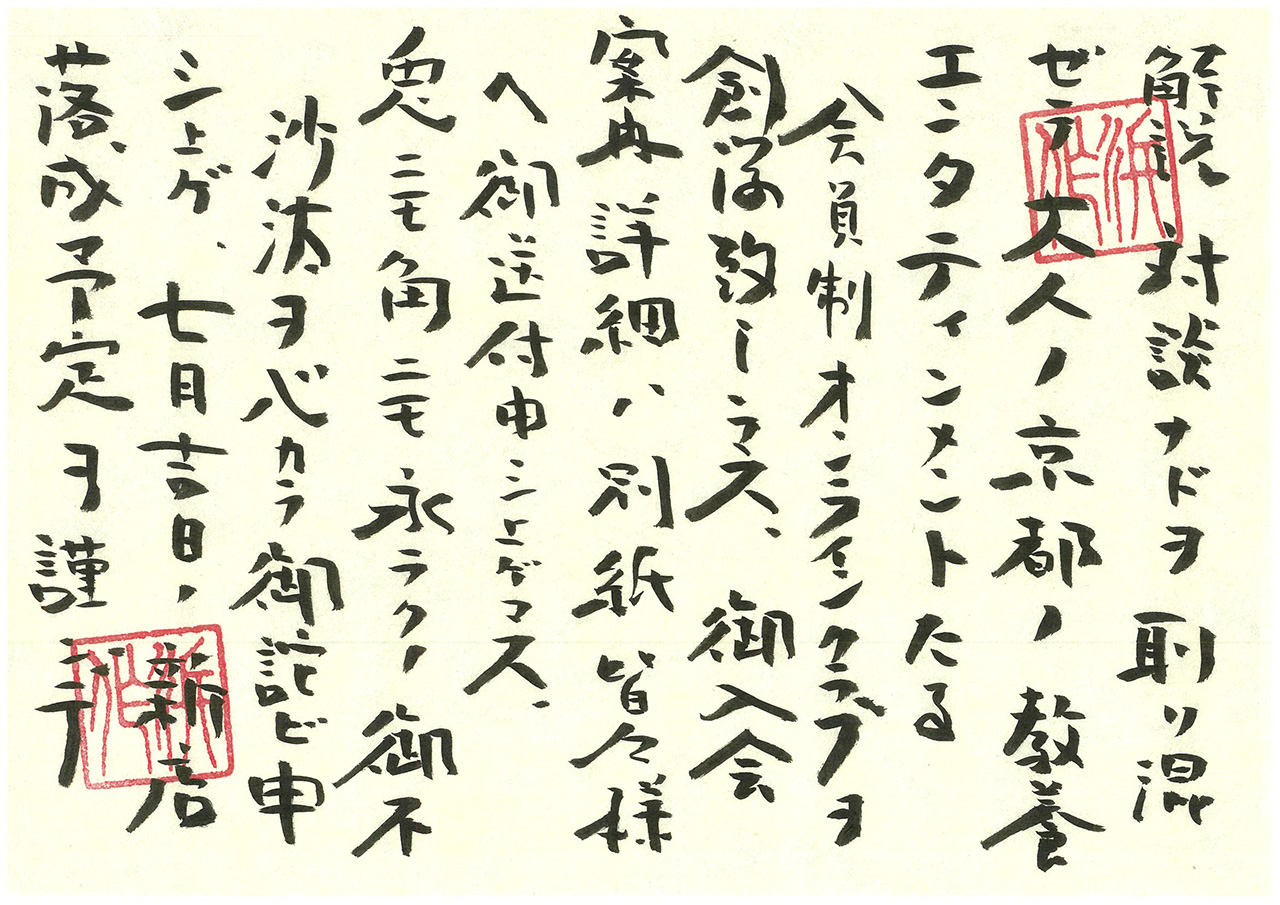 解説対談ナドヲ取リ混
ゼテ大人ノ京都ノ教養
エンタティンメントたる
会員制オンラインクラブヲ
創設致しマス、御入会
案内詳細ハ別紙皆々様
ヘ御送付申シ上ゲマス、
兎ニモ角ニモ永ラクノ御不
沙汰ヲ心カラ御詫ビ申
シ上ゲ、七月吉日、新店
落成予定ヲ謹ンデ